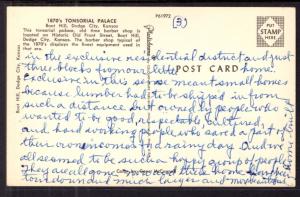 1870's TONSORIAL PALACE
Boot Hill, Dodge City, Kansas
This tonsorial palace, old time barber shop, is
located on Historic Old Front Street, Boot Hill,
Dodge City, Kansas. The barber shop typical
of the 1870's displays the finest equipment used in
that era.
P61972
(3)
PUT
STAMP
HERE
POST CARD
Boot Hill, Dodge City, Kansas
in the exclusive residential district and just
two blocks from our little home.
Exclusive in this sense meant small homes
because lumber had to be shipped in from
such a distance but owned by people who
wanted to be good, respectable, cultured,
and hard working people who saved a part for
their own incomes and rainy day. And we
all seemed to be such a happy group of people.
They are all gone
home
torn down and much larger and more beautiful
homes built